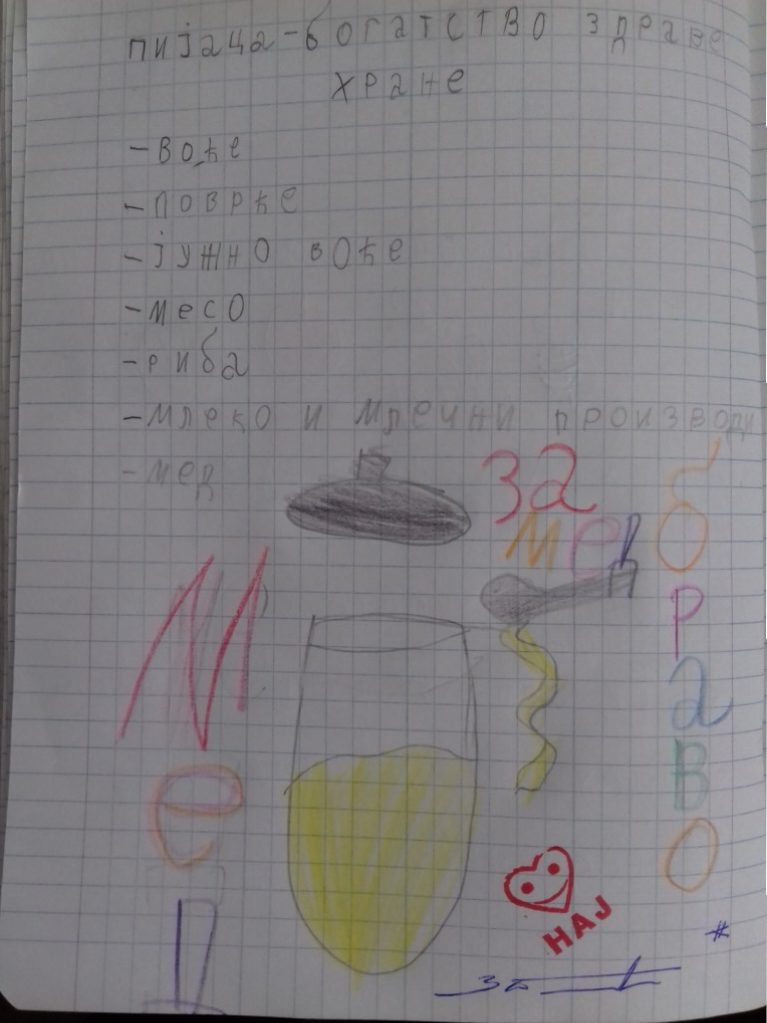 пијаца-богатство здраве
хране
-воће
-поврће
-јужно воће
-месо
-риба
-млеко и млечни производи
-мед
За
мед
браво
Мед
НАЈ